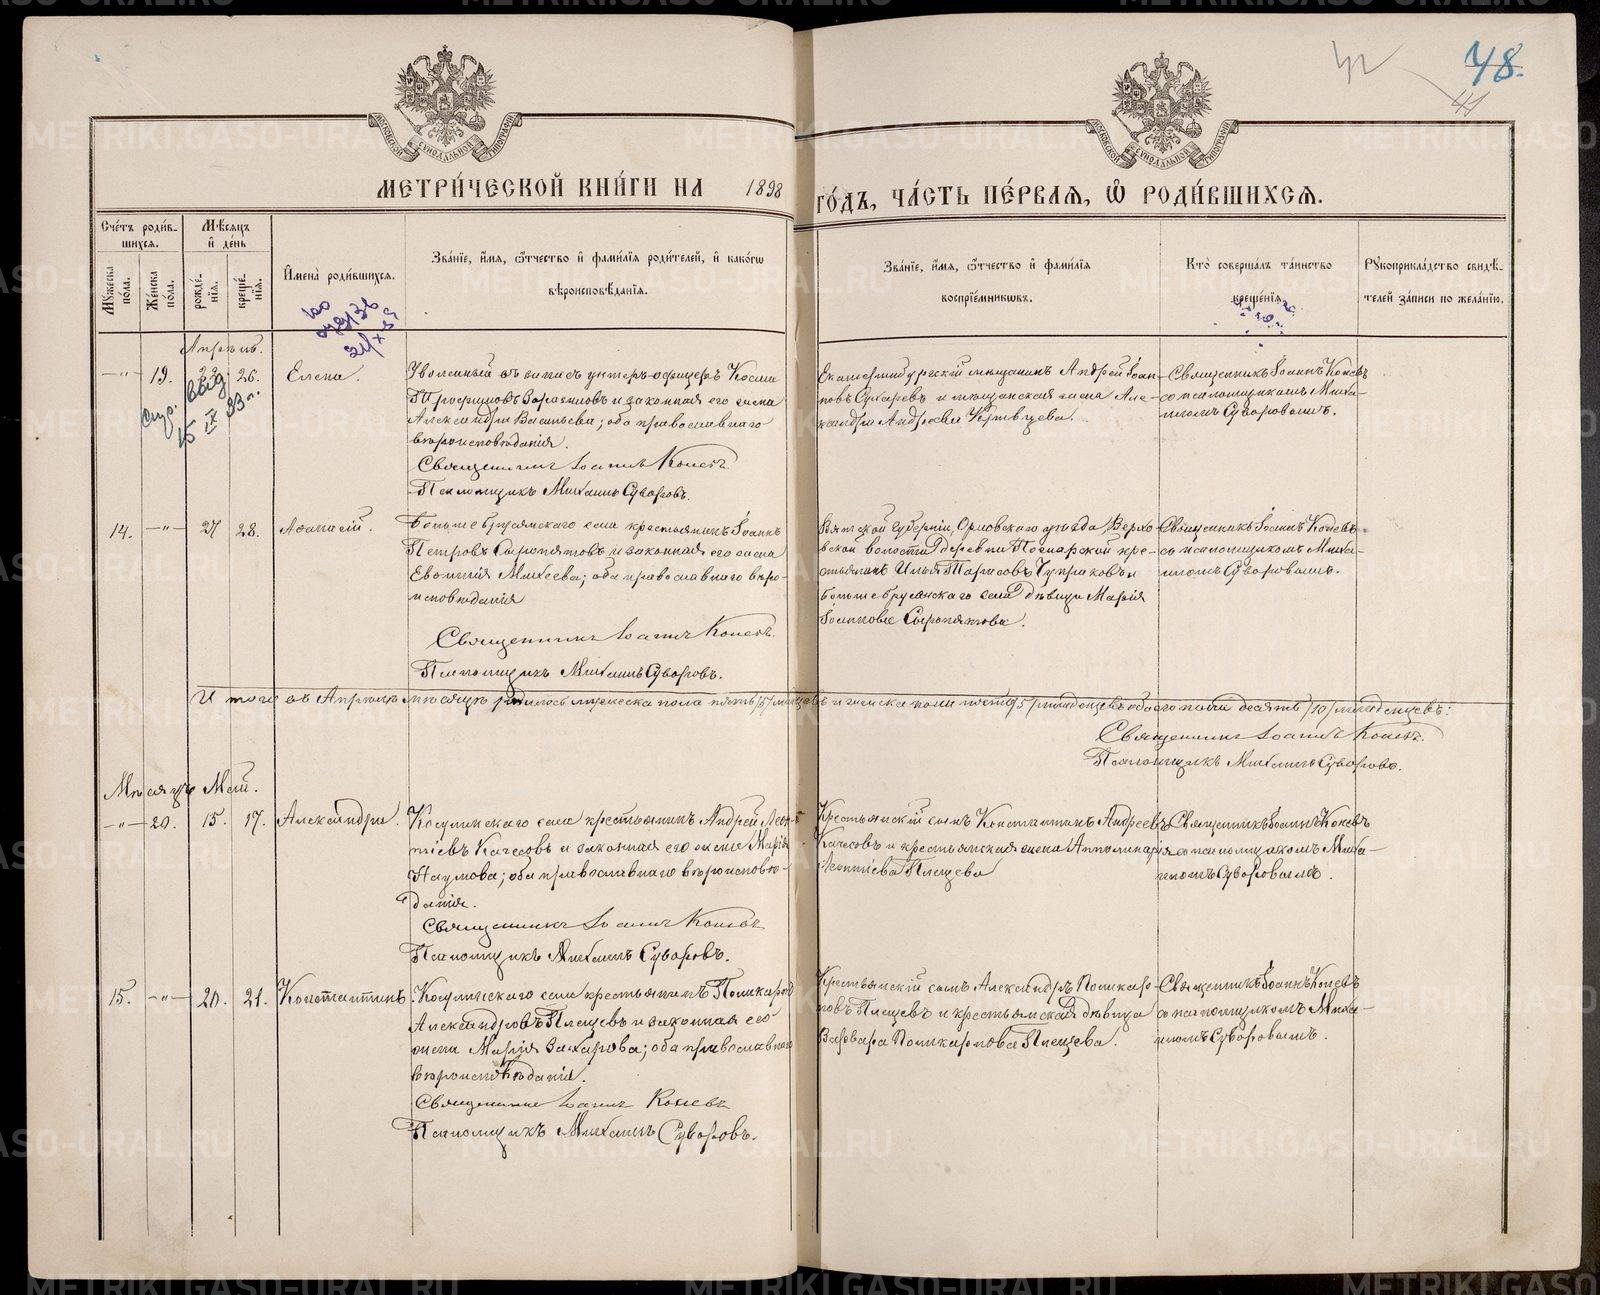 48.
41
МЕТРИ́ЧЕСКОЙ КНИ́ГИ НА 1898 ГО́ДЪ, ЧА́СТЬ ПЕ́РВАЯ, Ѽ РОДИ́ВШИХСЯ.
Сче́тъ роди́вшихся.
Му́жеска по́ла.
Же́нска по́ла.
Мѣ́сяцъ и де́нь
рожде́нїя.
креще́нїя.
И҆мена̀ роди́вшихся.
Зва́нїе, и҆́мя, ѻ҆́тчество и҆ фами́лїя роди́телей, и҆ како́гѡ
вѣроисповѣ́данїя.
Зва́нїе, и҆́мя, ѻ҆́тчество и҆ фами́лїя
воспрїе́мникѡвъ.
Кто̀ соверша́лъ та́инство
креще́нїя.
Рꙋкоприкла́дство свидѣ́телей за́писи по жела́нїю.
Апрѣль.
—"— 19. 26. Елена.
Уволенный въ запасъ унтеръ-офицеръ Косма
и законная его жена
Александра Васильева; оба православнаго
вѣроисповѣданія.
Священникъ Іоаннъ Коневъ.
Псаломщикъ Михаилъ Суворовъ.
Екатеринбургскій мѣщанинъ Андрей Іоан-
новъ Сухаревъ и мѣщанская жена Але-
ксандра Андреева
Священникъ Іоаннъ Коневъ
со псаломщикомъ Миха-
иломъ Суворовымъ.
14. —"— 27 28. Аѳанасій.
Больше брусянскаго села крестьянинъ Іоаннъ
Петровъ Сыропятовъ и законная его жена
Евѳимія Михеева; оба православнаго вѣро-
исповѣданія
Священникъ Іоаннъ Коневъ.
Псаломщикъ Михаилъ Суворовъ.
Вятской губерніи, Орловскаго уѣзда, Верхо-
вской волости деревни кре-
стьянинъ Илья Тарасовъ Чупраковъ и
Больше брусянскаго села дѣвица Марія
Іоаннова Сыропятова.
Священникъ Іоаннъ Коневъ
съ псаломщикомъ Миха-
иломъ Суворовымъ.
Итого въ Апрѣлѣ мѣсяцѣ родилось мужеска пола пять /5/ младенцевъ и женска пола пять /5/ младенцевъ обоего пола десять /10/ младенцевъ:
Священникъ Іоаннъ Коневъ.
Псаломщикъ Михаилъ Суворовъ.
Мѣсяцъ Май.
—"— 20. 15. 17. Александра.
Косулинскаго села крестьянинъ Андрей Леон-
тіевъ Качесовъ и законная его жена Марія
Наумова; оба православнаго вѣроисповѣ-
данія.
Священникъ Іоаннъ Коневъ
Псаломщикъ Михаилъ Суворовъ.
Крестьянскій сынъ Константинъ Андреевъ
Качесовъ и крестьянская жена Апполинарія
Леонтіева Плещева
Священникъ Іоаннъ Коневъ
со псаломщикомъ Миха-
иломъ Суворовымъ.
15. —"— 20. 21. Константинъ.
Косулинскаго села крестьянинъ Поликарпъ
Александровъ Плещевъ и законная его
жена Марія Захарова; оба православнаго
вѣроисповѣданія.
Священникъ Іоаннъ Коневъ
Псаломщикъ Михаилъ Суворовъ.
Крестьянскій сынъ Александръ Поликар-
повъ Плещевъ и крестьянская дѣвица
Варвара Поликарпова Плещева.
Священникъ Іоаннъ Коневъ
со псаломщикомъ Миха-
иломъ Суворовымъ.